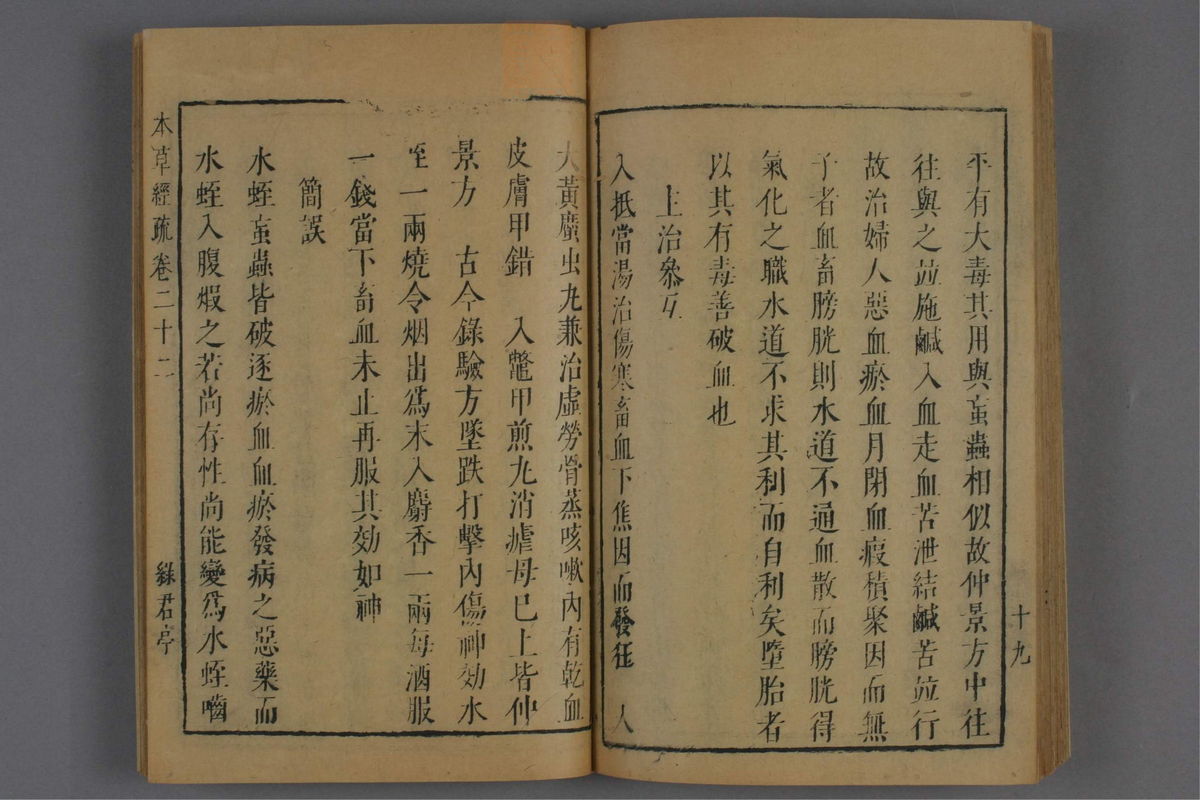 平有大毒其用與䖟蟲相似故仲景方中往
往與之竝施鹹入血走血苦泄結鹹苦竝行
故治婦人惡血瘀血月閉血瘕積聚因而無
子者血畜膀胱則水道不通血散而膀胱得
氣化之職水道不求其利而自利矣墮胎者
以其有毒善破血也
主治叅互
入抵當湯治傷寒畜血下焦因而發狂　入
十九
大黃䗪虫丸兼治虛勞骨蒸咳嗽內有乾血
皮膚甲錯　入鼈甲煎丸消瘧母已上皆仲
景方　古今錄驗方墜跌打擊內傷神効水
蛭一兩燒令烟出爲末入麝香一兩每酒服
一錢當下畜血未止再服其効如神
簡誤
水蛭䖟蟲皆破逐瘀血血瘀發病之惡藥而
水蛭入腹煆之若尚存性尚能變爲水蛭嚙
本草經疏卷二十二
綠君亭